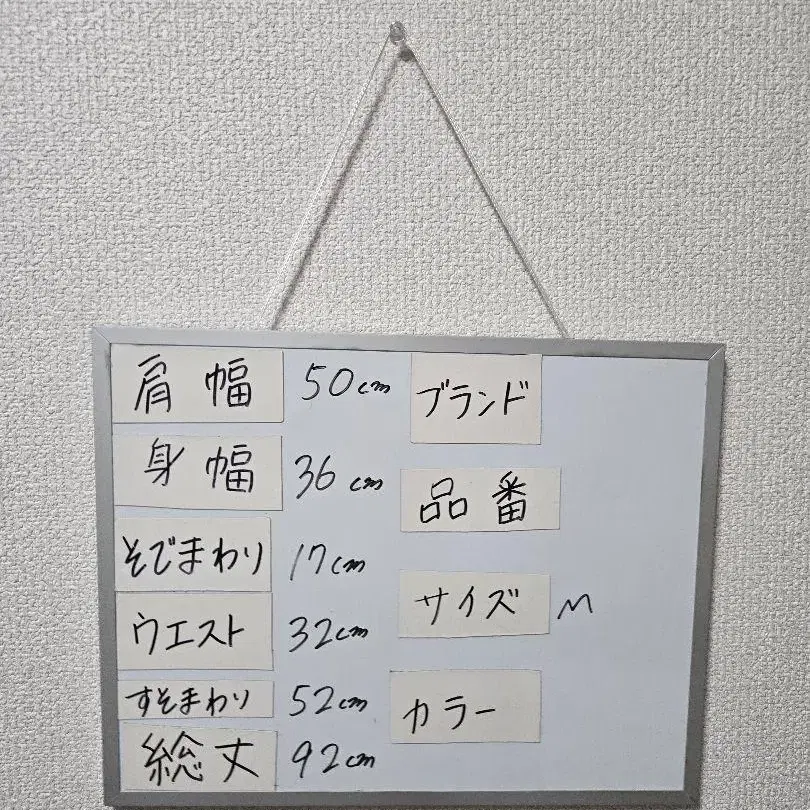 肩幅 50cm
身幅 36cm
そでまわり 17cm
ウエスト 32cm
すそまわり 52cm
総丈 92cm
ブランド
品番
サイズ M
カラー